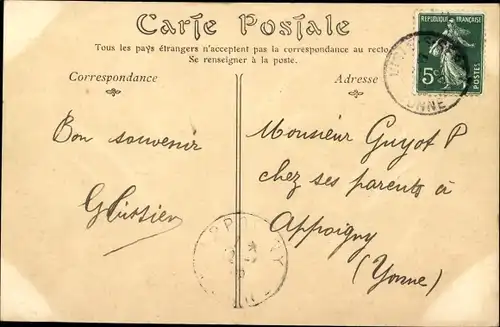 Carte Postale
Tous les pays étrangers n'acceptent pas la correspondance au recto.
Se renseigner à la poste.
Correspondance
Adresse
REPUBLIQUE FRANÇAISE
5c
POSTES
YONNE
Bon souvenir
Monsieur Guyot P
chez ses parents à
Appoigny
(Yonne)
APPOIGNY